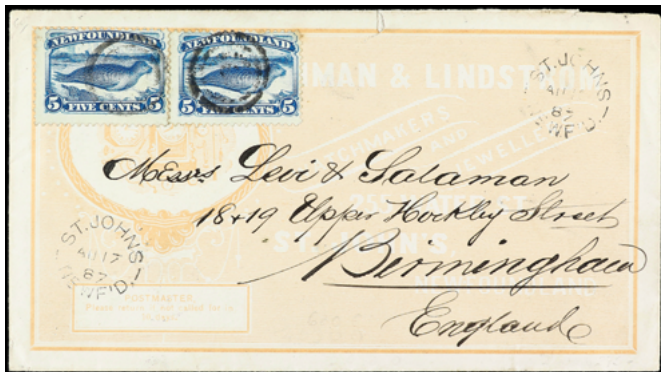 NEWFOUNDLAND
5 FIVE CENTS 5
NEWFOUNDLAND
5 FIVE CENTS 5
MAN & LINDSTROM
WATCHMAKERS
AND
JEWELLERS
ST. JOHN'S,
NEWFOUNDLAND
ST. JOHNS
AU 17
87
NEWF'D.
Messrs Levi & Salaman
18 & 19 Upper Hockley Street
Birmingham
England
ST. JOHNS
AU 17
87
NEWF'D.
POSTMASTER,
Please return if not called for in